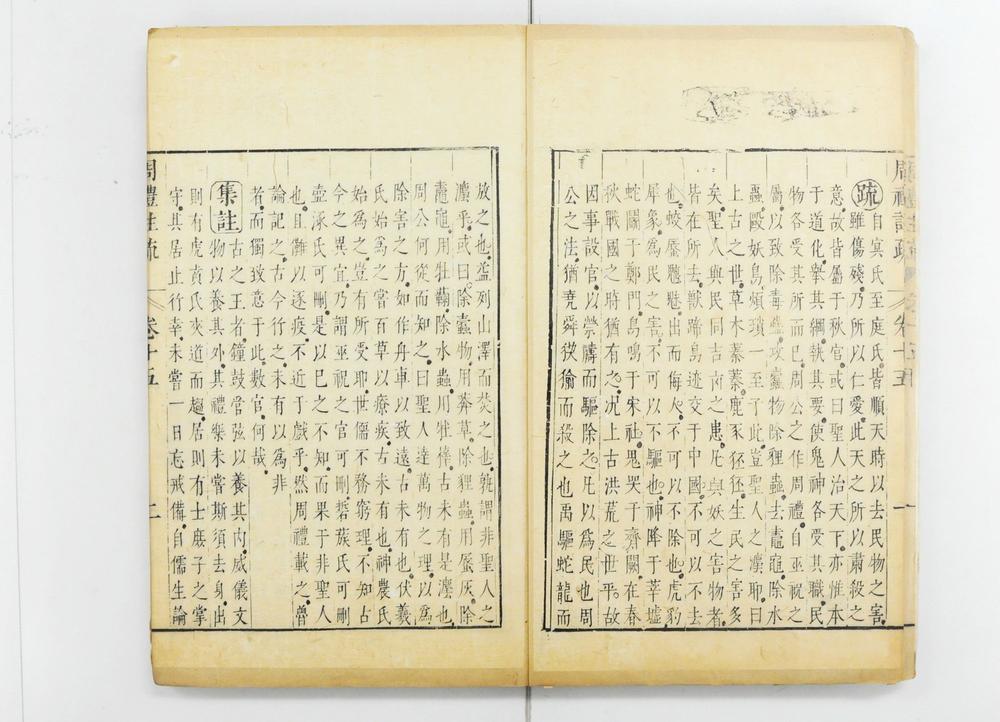 周禮註疏 卷十五 一
疏自㝠氏至庭氏皆順天時以去民物之害
雖傷殘乃所以仁愛此天之所以肅殺之
意故皆屬于秋官或曰聖人治天下亦惟本
于道化舉其綱執其要使鬼神各受其職民
物各受其所而已周公之作周禮自巫祝之
屬以致除毒蠱攻蠹物除貍蟲去鼃黽除水
蟲毆妖鳥煩瑣一至于此豈聖人之灋耶曰
上古之世草木蓁蓁鹿豕狉狉生民之害多
矣聖人與民同吉凶之患凡與妖之害物者
皆在所去獸蹄鳥迹交于中國不可以不去
也蛟蜃魑魅出而侮人不可以不除也虎豹
犀象為民之害不可以不驅也神降于莘墟
蛇鬭于鄭門鳥鳴于宋社鬼哭于齊闕在春
秋戰國之時猶有之况上古洪荒之世乎故
因事設官以禜禱而驅除之凡以為民也周
公之法猶堯舜
而殺之也禹驅蛇龍而
放之也益列山澤而焚之也孰謂非聖人之
灋乎或曰除蠹物用莽草除貍蟲用蜃灰除
鼃黽用牡蘜除水蟲用牡橭古未有是灋也
周公何從而知之曰聖人達萬物之理以為
除害之方如作舟車以致遠古未有也伏羲
氏始為之嘗百草以療疾古未有也神農氏
始為之豈有所受耶世儒不務窮理不知古
今之異宜乃謂巫祝之官可刪硩蔟氏可刪
壺涿氏可刪是以巳之不知而果于非聖人
也且儺以逐疫不近于戲乎然周禮載之魯
論記之古今行之未有以為非
者而獨致意于此數官何哉
集註古之王者鐘鼓管弦以養其内威儀文
物以養其外其禮樂未嘗斯須去身出
則有虎賁氏夾道而趨居則有士庶子之掌
守其居止行幸未嘗一日忘戒備自儒生論
周禮註疏 卷十五 二